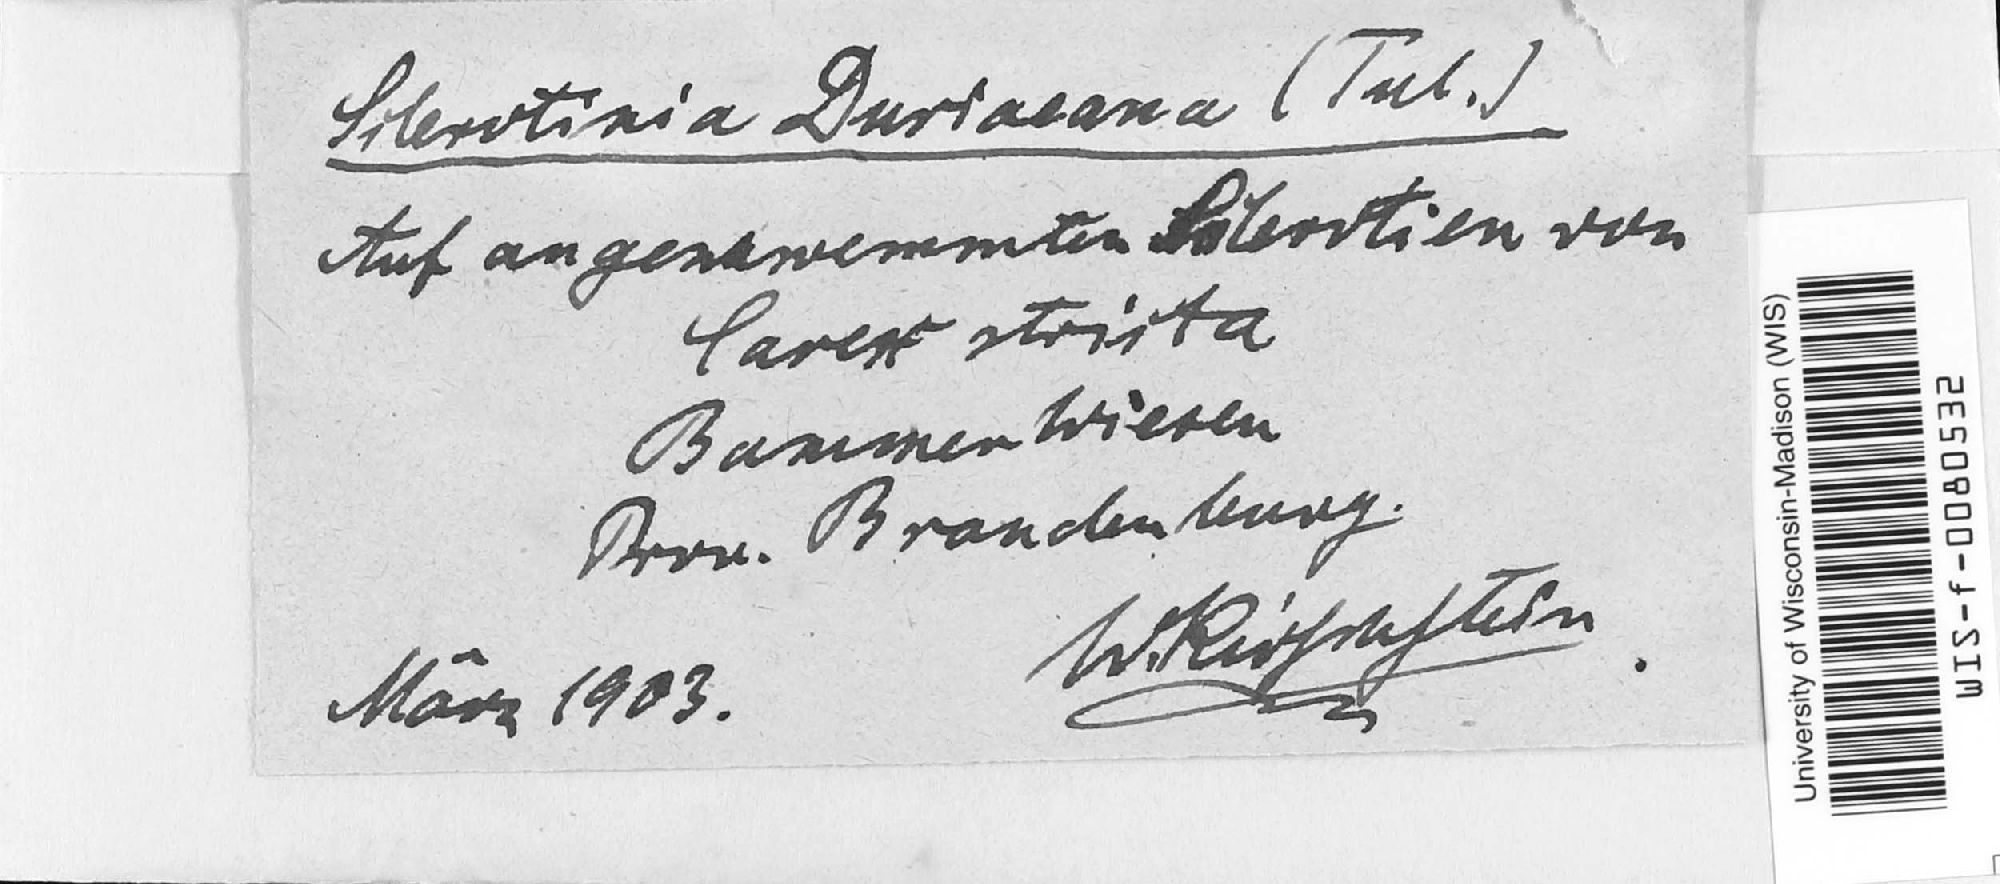 Sclerotinia Duriaeana (Tul.)
Auf angeschwemmten Sclerotien von
Carex stricta
Bammer Wiesen
Prov. Brandenburg.
W. Kirschstein
März 1903.
University of Wisconsin-Madison (WIS)
WIS-f-0080532